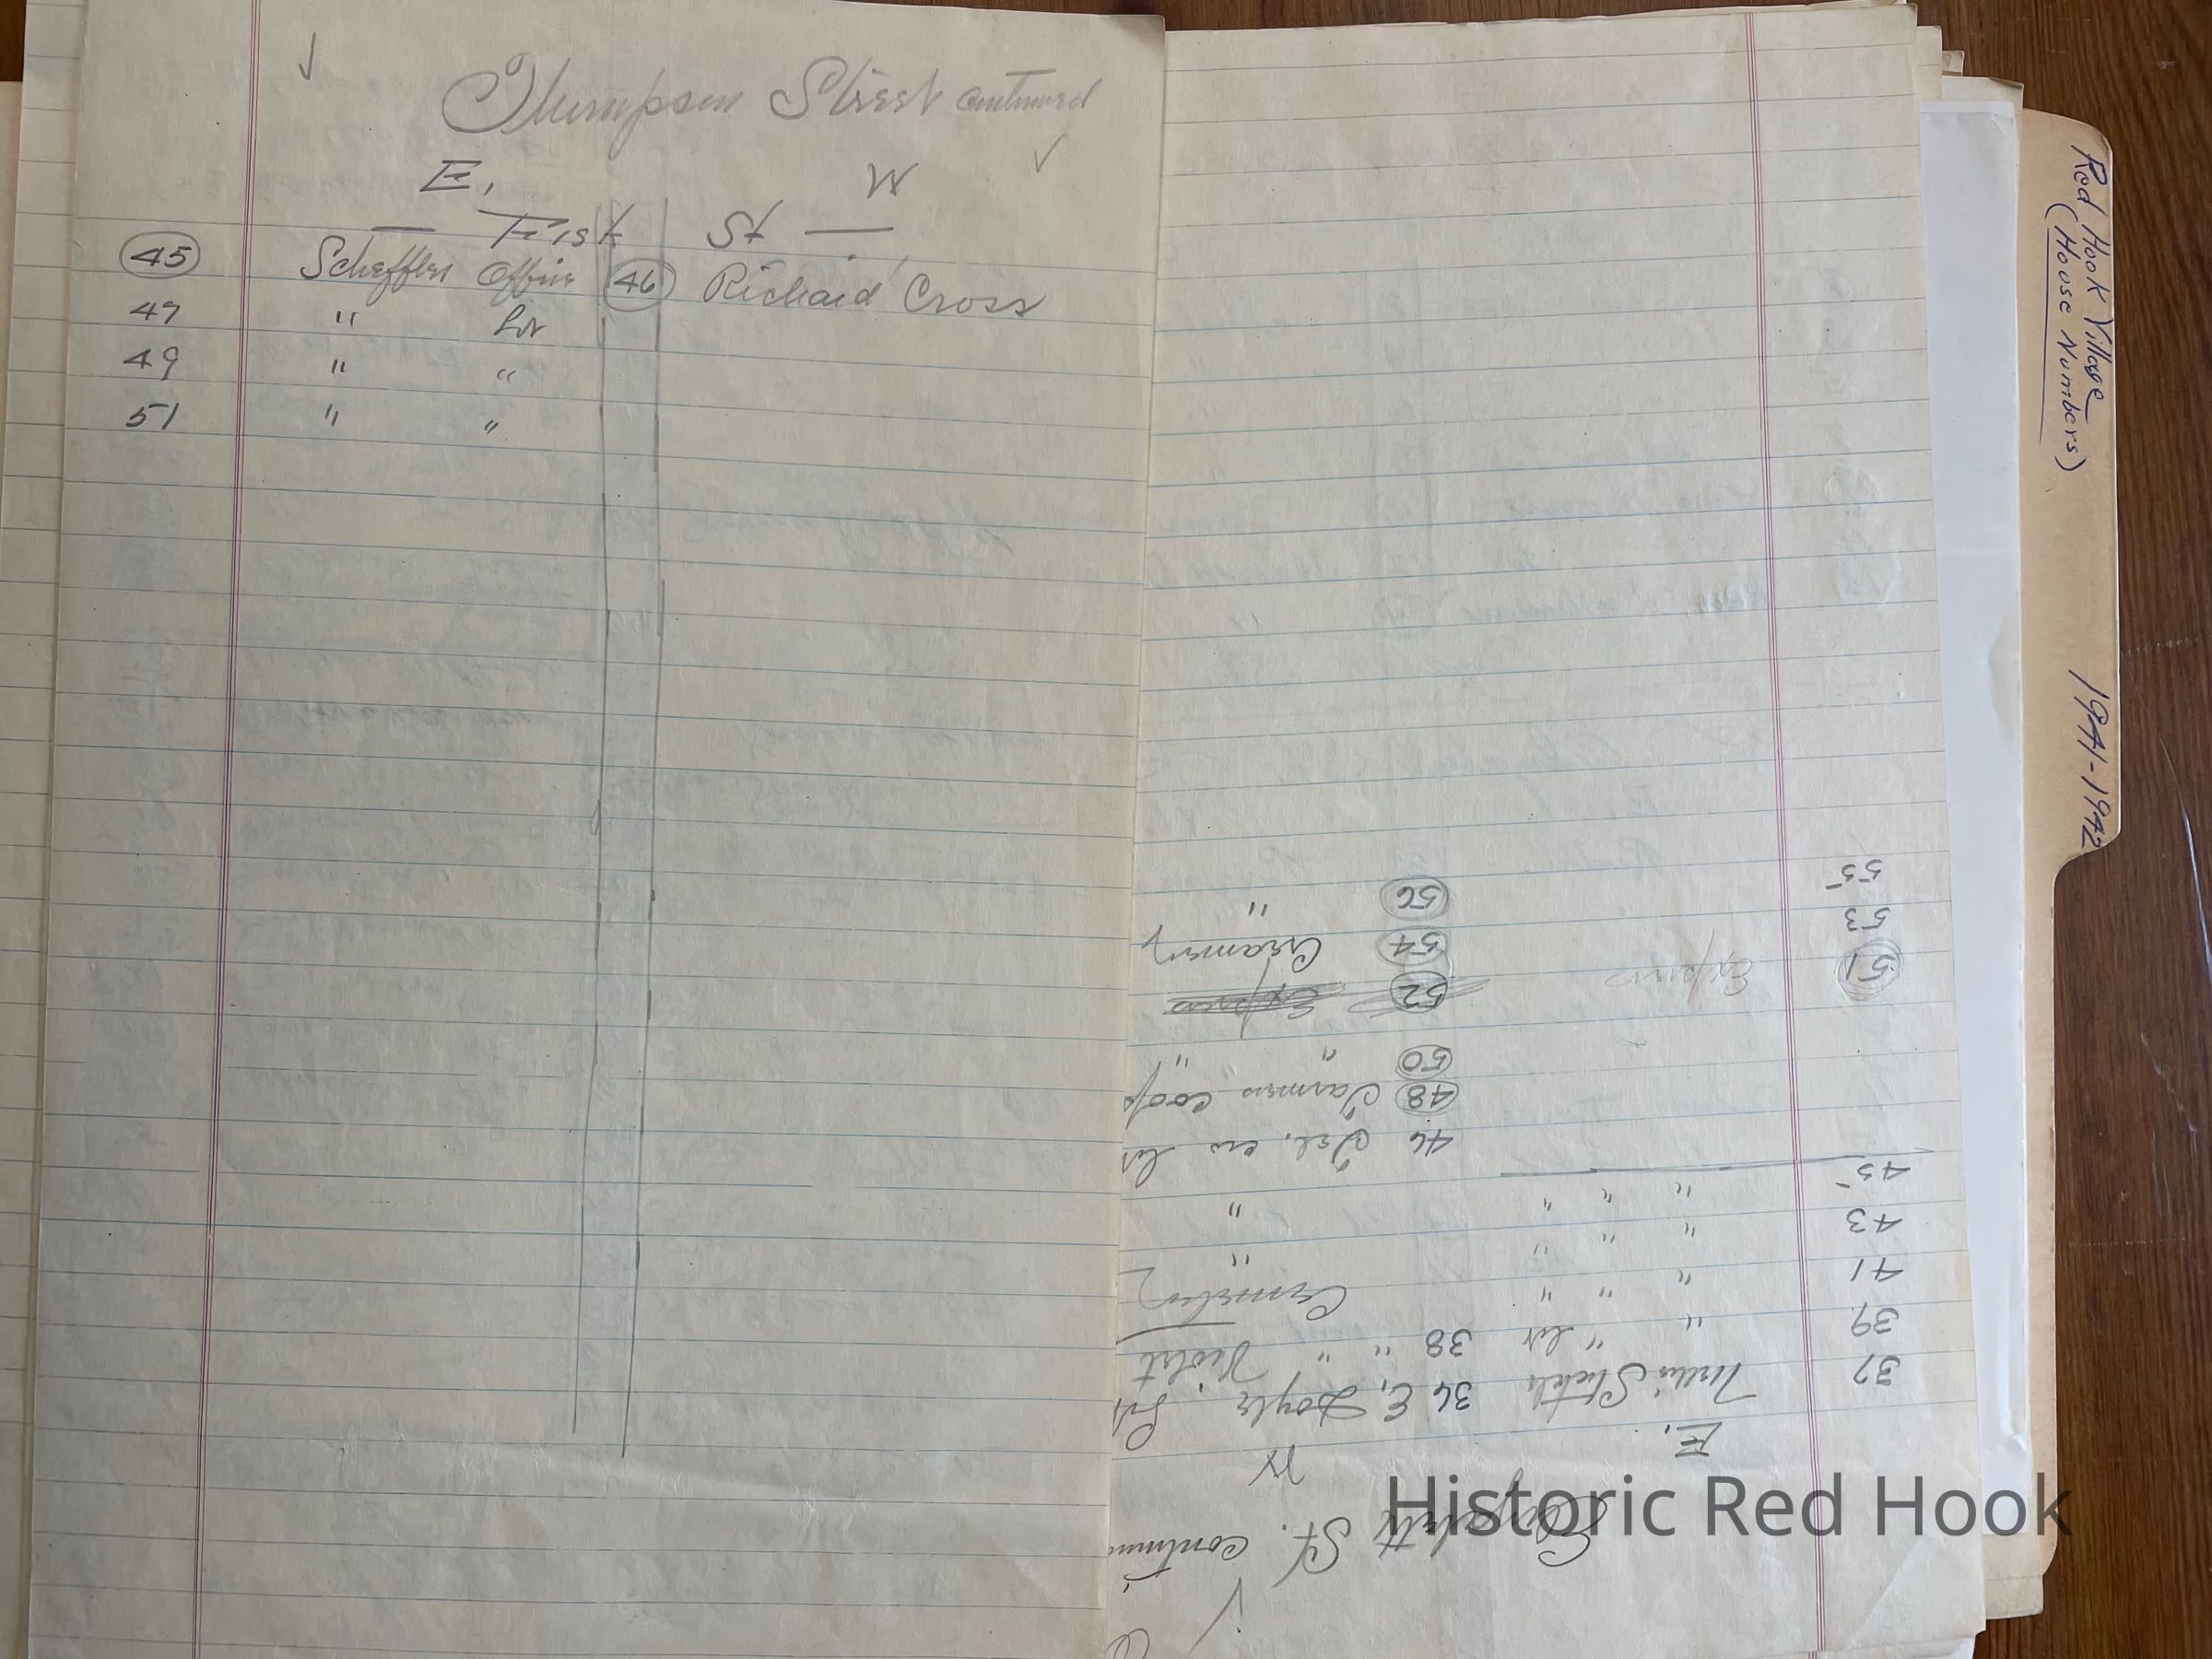 Thompson Street continued
E, W
— Fisk St —
45 Scheffler Office 46 Richard Cross
47 " Lot
49 " "
51 " "
Red Hook Village
(House Numbers)
1941-1942
St. continu
E, W
37 36 E, Doyle
39 " " Lot 38 " " Violet
41 " " " Cemetery
43 " " " "
45 " " " "
46 Tel. Lot
48 Farmers Coop
50 " "
51 Express 52 Express
53 54 Creamery
55 56 "
Historic Red Hook